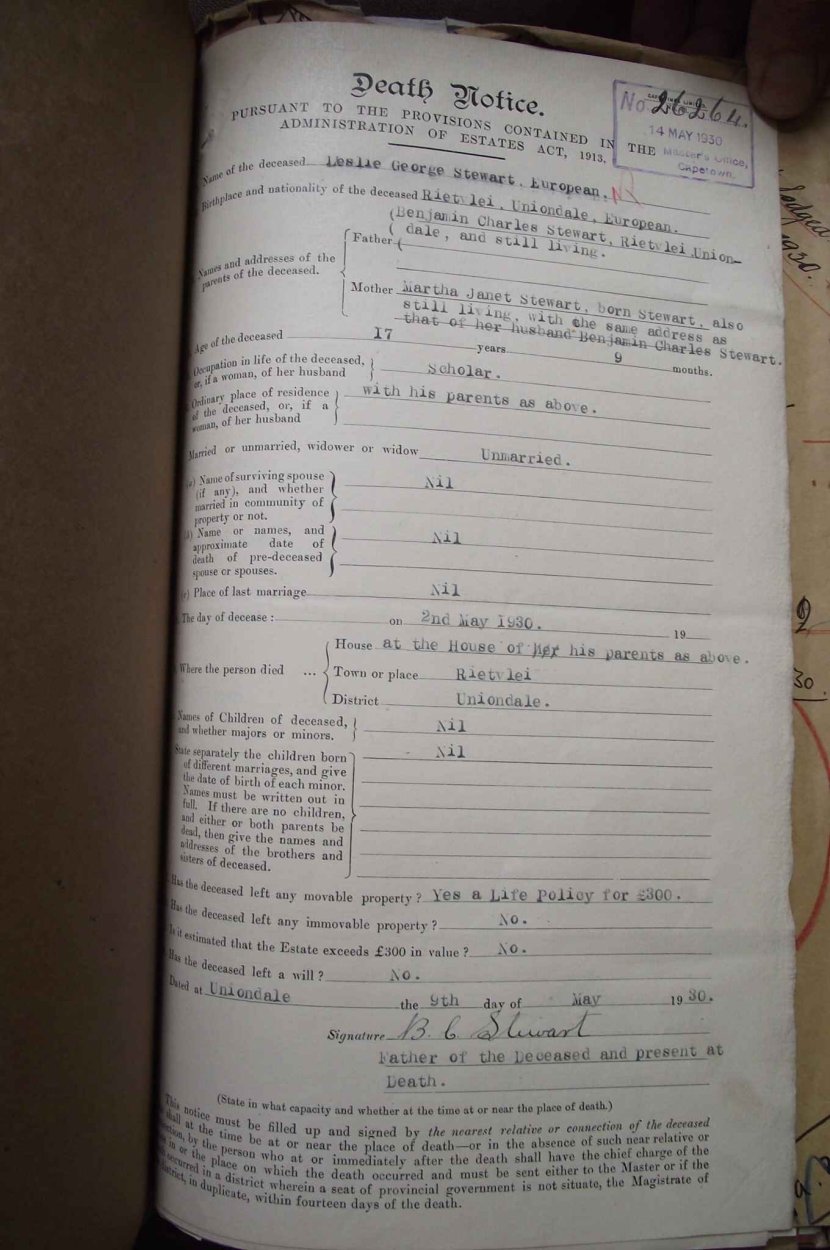 Death Notice.
PURSUANT TO THE PROVISIONS CONTAINED IN THE
ADMINISTRATION OF ESTATES ACT, 1913.
No 26264.
14 MAY 1930
Master's Office,
Capetown.
Name of the deceased Leslie George Stewart, European.
Birthplace and nationality of the deceased Rietvlei, Uniondale, European.
Names and addresses of the parents of the deceased.
Father (Benjamin Charles Stewart, Rietvlei Union-
dale, and still living.
Mother Martha Janet Stewart, born Stewart, also
still living, with the same address as
that of her husband Benjamin Charles Stewart.
Age of the deceased 17 years 9 months.
Occupation in life of the deceased,
or, if a woman, of her husband
Scholar.
Ordinary place of residence
of the deceased, or, if a
woman, of her husband
with his parents as above.
Married or unmarried, widower or widow Unmarried.
(a) Name of surviving spouse
(if any), and whether
married in community of
property or not.
Nil
(b) Name or names, and
approximate date of
death of pre-deceased
spouse or spouses.
Nil
(c) Place of last marriage Nil
The day of decease: on 2nd May 1930. 19
Where the person died ...
House at the House of his parents as above.
Town or place Rietvlei
District Uniondale.
Names of Children of deceased,
and whether majors or minors.
Nil
State separately the children born
of different marriages, and give
the date of birth of each minor.
Names must be written out in
full. If there are no children,
and either or both parents be
dead, then give the names and
addresses of the brothers and
sisters of deceased.
Nil
Has the deceased left any movable property? Yes a Life Policy for £300.
Has the deceased left any immovable property? No.
Is it estimated that the Estate exceeds £300 in value? No.
Has the deceased left a will? No.
Dated at Uniondale the 9th day of May 1930.
Signature B. C. Stewart
Father of the Deceased and present at
Death.
(State in what capacity and whether at the time at or near the place of death.)
This notice must be filled up and signed by the nearest relative or connection of the deceased
shall at the time be at or near the place of death—or in the absence of such near relative or
by the person who at or immediately after the death shall have the chief charge of the
in or the place on which the death occurred and must be sent either to the Master or if the
occurred in a district wherein a seat of provincial government is not situate, the Magistrate of
district, in duplicate, within fourteen days of the death.
lodged
1930.
30.